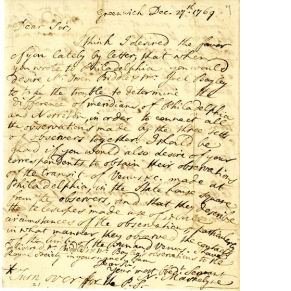 Greenwich Dec. 27th 1769.
Dear Sir,
I think I desired the favor
of you lately by letter, that when
you wrote to Philadelphia you would
desire Mr. Biddle & Mr. Joel Bayley
to take the trouble to determine the
Difference of meridians of Philadelphia
and Norriton, in order to connect all
the observations made by the three sets
of observers together. I should be
glad if you would also desire of your
correspondents to obtain their observations
of the transit of Venus made at
Philadelphia, in the State house Square
from the observers, and that they
the telescopes made use of, and the
circumstances of the observation, particularly
in what manner they observe the contacts
of the limbs of the Sun and Venus.
Royal Society in your
Dear Sir
Your most Obed. Servant
* Turn over for the P.S. N. Maskelyne